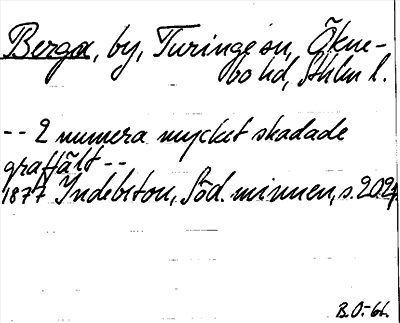 Berga, by, Turinge sn, Ökne-
bo hd, Sthlm l.
-- 2 numera mycket skadade
graffält --
1877 Indebetou, Söd. minnen, s. 202.
B.O-66.